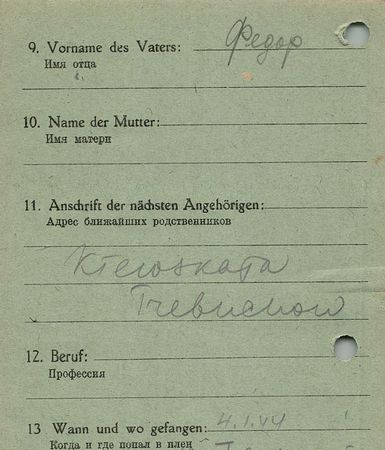 9. Vorname des Vaters: Федор
Имя отца
10. Name der Mutter:
Имя матери
11. Anschrift der nächsten Angehörigen:
Адрес ближайших родственников
12. Beruf:
Профессия
13 Wann und wo gefangen: 4.1.44
Когда и где попал в плен